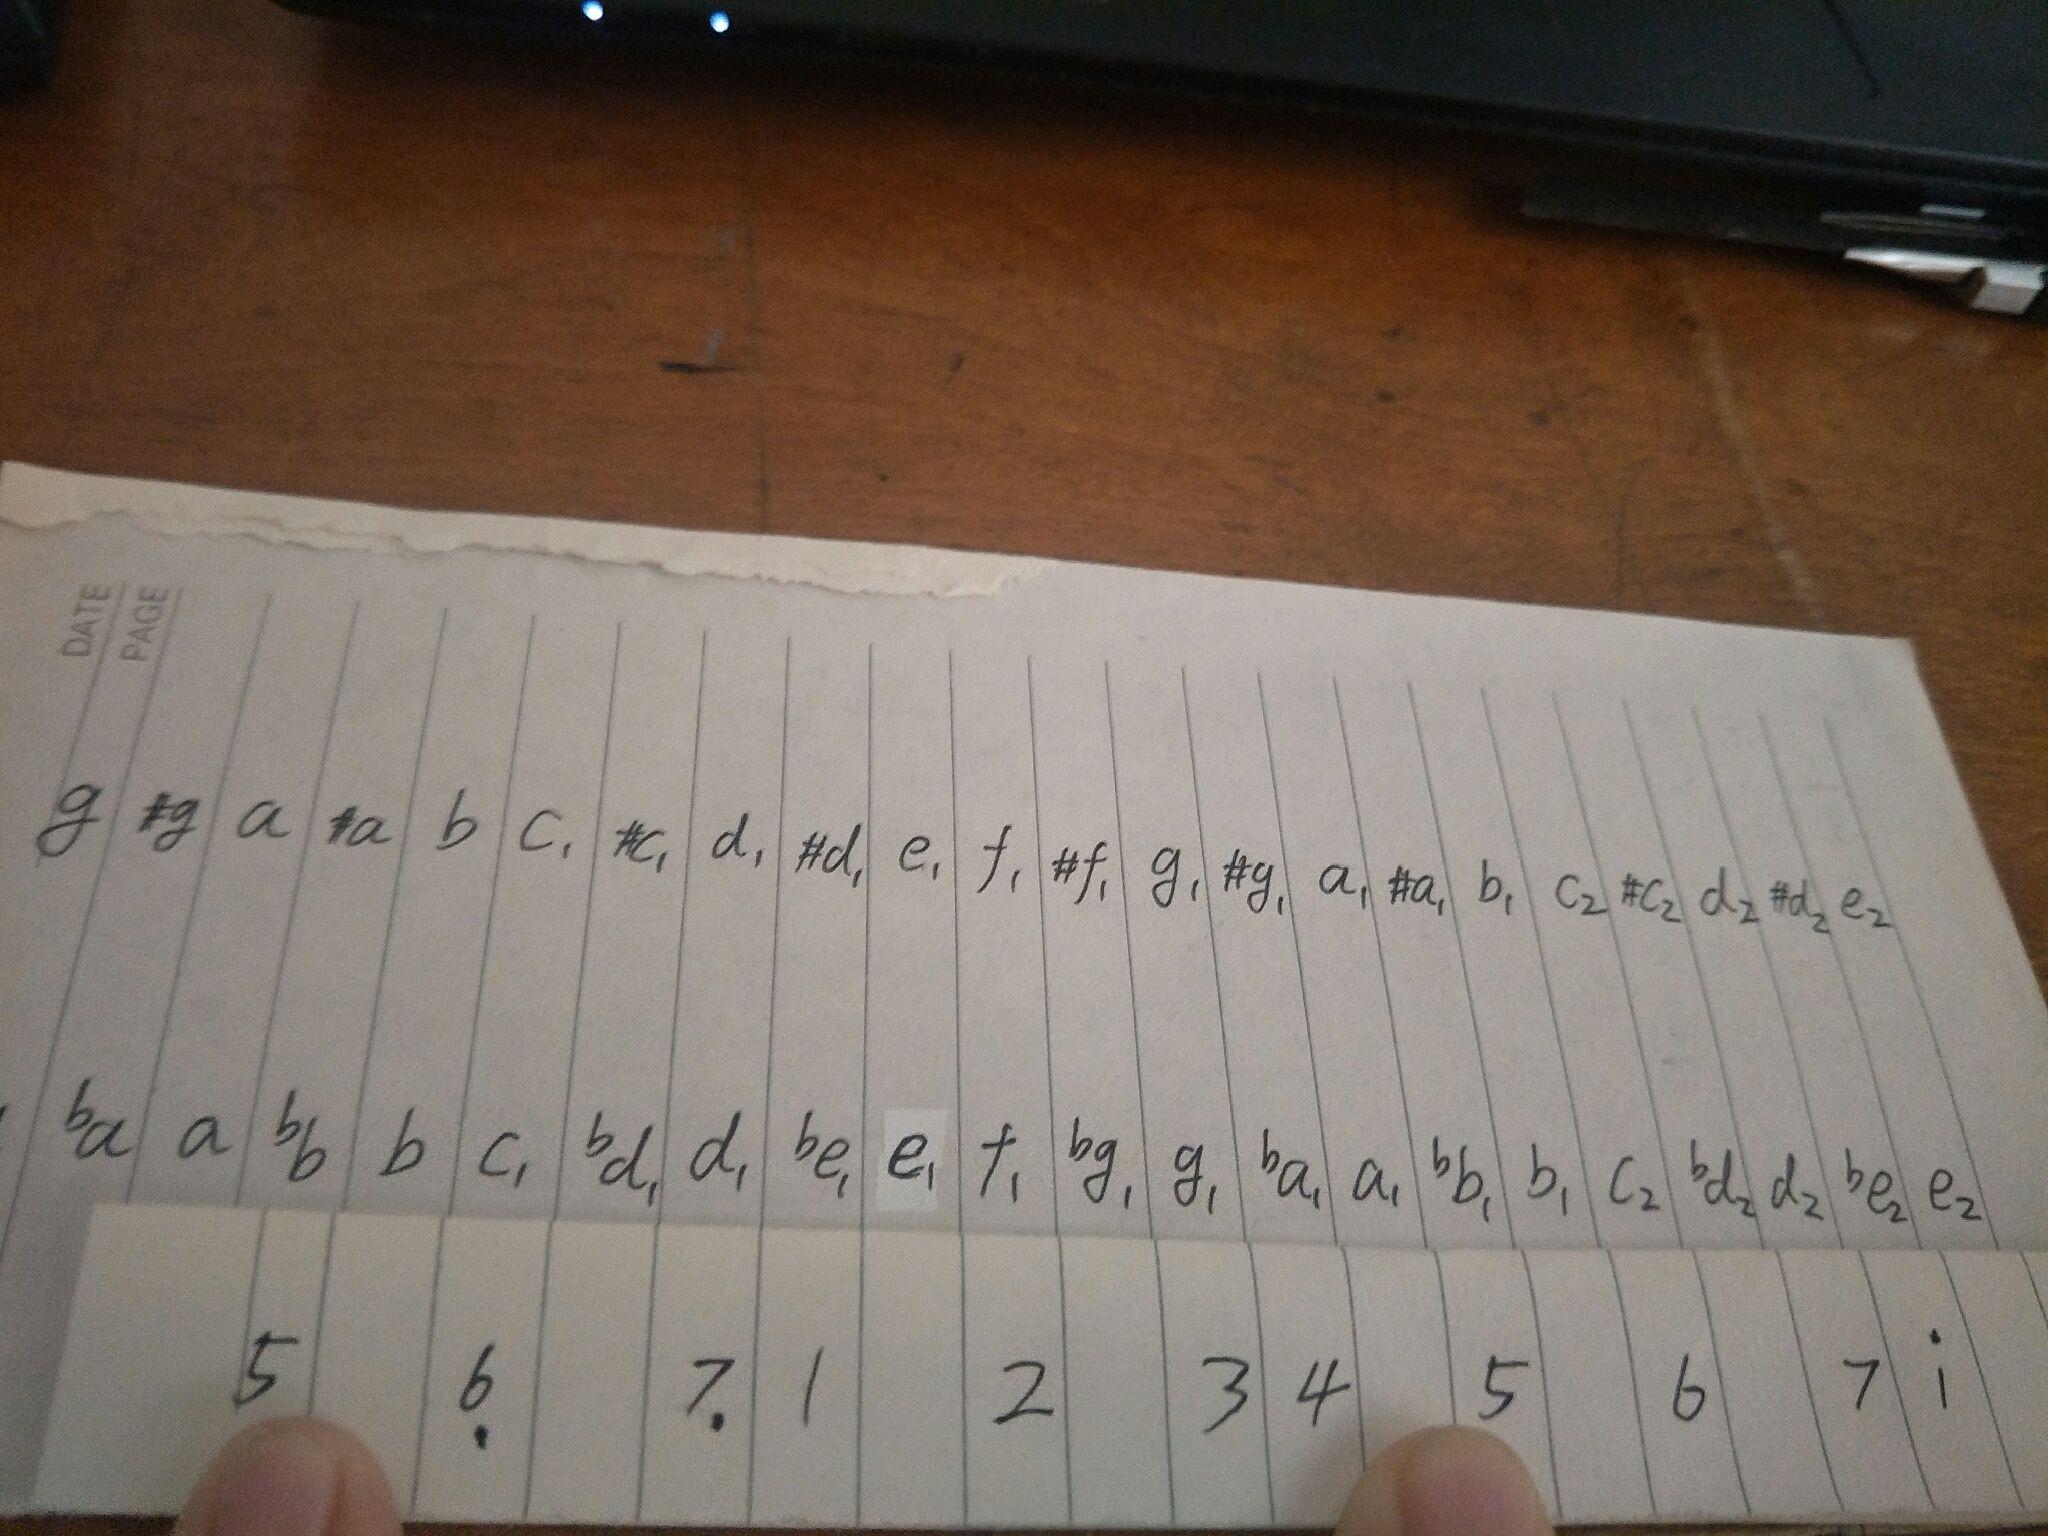 DATE
PAGE
g #g a #a b c₁ #c₁ d₁ #d₁ e₁ f₁ #f₁ g₁ #g₁ a₁ #a₁ b₁ c₂ #c₂ d₂ #d₂ e₂
ba a bb b c₁ bd₁ d₁ be₁ e₁ f₁ bg₁ g₁ ba₁ a₁ bb₁ b₁ c₂ bd₂ d₂ be₂ e₂
5 6̣ 7̣ 1 2 3 4 5 6 7 i